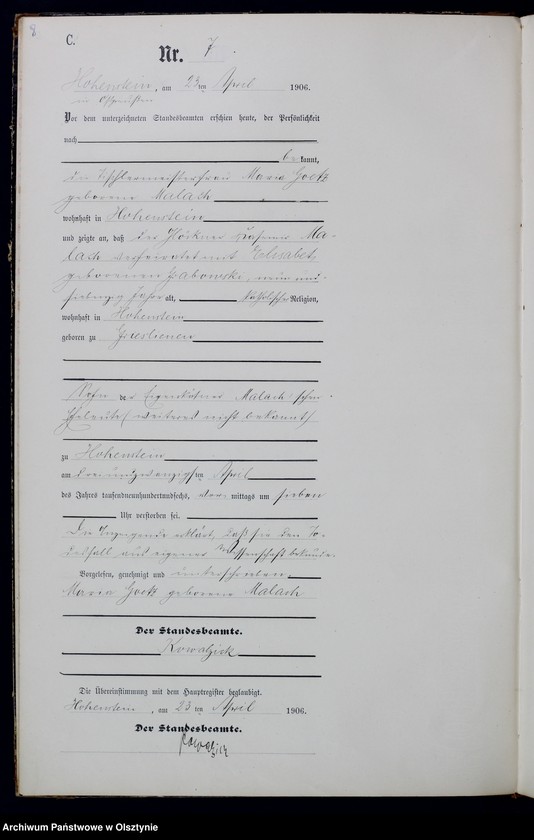 8
C.
Nr. 7.
Hohenstein, am 23ten April 1906.
in Ostpreußen
Vor dem unterzeichneten Standesbeamten erschien heute, der Persönlichkeit
nach
be kannt,
die Tischlermeisterfrau Maria Goetz
geborene Malach
wohnhaft in Hohenstein
und zeigte an, daß der Glöckner Kasimir Ma-
lach verheiratet mit Elisabet,
geborenen Grabowski, neun und
siebenzig Jahre alt, katholischer Religion,
wohnhaft in Hohenstein
geboren zu Grieslienen
Sohn der Eigenkätner Malach'schen
Eheleute (weiteres nicht bekannt)
zu Hohenstein
am dreiundzwanzigsten April
des Jahres tausendneunhundertundsechs, vor mittags um sieben
Uhr verstorben sei.
Die Anzeigende erklärt, daß sie den To-
desfall aus eigener Wissenschaft bekunde.
Vorgelesen, genehmigt und unterschrieben.
Maria Goetz geborene Malach
Der Standesbeamte.
Kowalzick
Die Übereinstimmung mit dem Hauptregister beglaubigt.
Hohenstein, am 23ten April 1906.
Der Standesbeamte.
Kowalzick
Archiwum Państwowe w Olsztynie